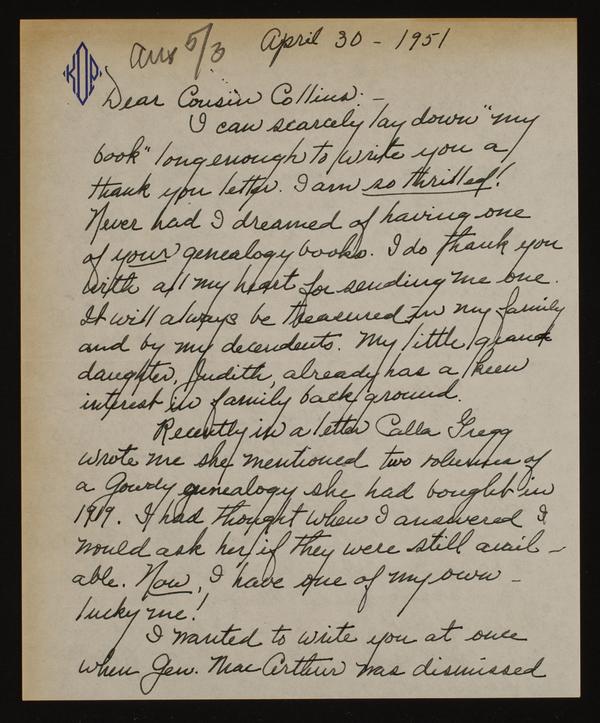 Ans 5/3 April 30 - 1951
KDP
Dear Cousin Collins: -
I can scarcely lay down "my
book" long enough to write you a
thank you letter. I am so thrilled!
Never had I dreamed of having one
of your genealogy books. I do thank you
with all my heart for sending me one.
It will always be treasured in my family
and by my decendents. My little grand
daughter, Judith, already has a keen
interest in family back ground.
Recently in a letter Calla Gregg
wrote me she mentioned two volumes of
a Gowdy genealogy she had bought in
1919. I had thought when I answered I
would ask her if they were still avail-
able. Now, I have one of my own -
lucky me!
I wanted to write you at once
when Gen. MacArthur was dismissed